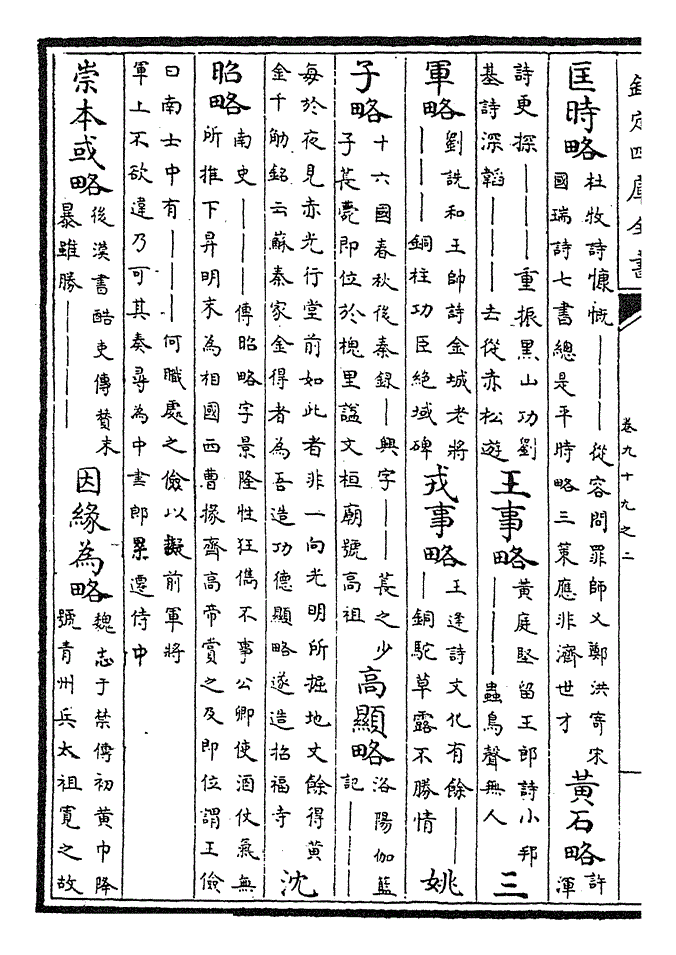 欽定四庫全書
卷九十九之二
匡時略
杜牧詩慷慨———從容問罪師又鄭洪寄宋
國瑞詩七書總是平時略三策應非濟世才
黃石略
許
渾
詩更探———重振黑山功劉
基詩深韜———去從赤松遊
王事略
黃庭堅留王郎詩小邦
———蟲鳥聲無人
三
軍略
劉詵和王帥詩金城老將
———銅柱功臣絕域碑
戎事略
王逢詩文化有餘——
—銅駝草露不勝情
姚
子略
十六國春秋後秦録—興字——萇之少
子萇薨即位於槐里諡文桓廟號高祖
高顯略
洛陽伽藍
記———
每於夜見赤光行堂前如此者非一向光明所掘地丈餘得黃
金千觔銘云蘇秦家金得者為吾造功德顯略遂造招福寺
沈
昭略
南史———傳昭略字景隆性狂儁不事公卿使酒仗氣無
所推下昇明末為相國西曹掾齊高帝賞之及即位謂王儉
曰南士中有———何職處之儉以擬前軍將
軍上不欲違乃可其奏尋為中書郎累遷侍中
崇本或略
後漢書酷吏傳贊末
暴雖勝————
因緣為略
魏志于禁傳初黃巾降
號青州兵太祖寬之故